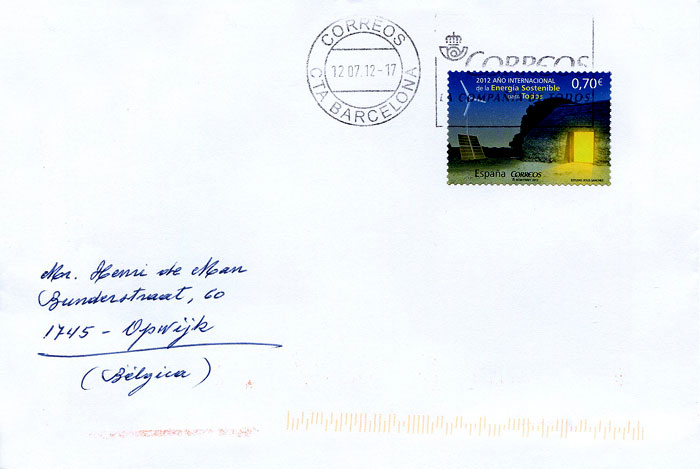 CORREOS
12.07.12-17
CTA BARCELONA
CORREOS
LA COMPAÑIA TODOS
2012 AÑO INTERNACIONAL
de la Energía Sostenible
para Todos
0,70€
España CORREOS
Mr. Henri de Man
Bunderstraat, 60
1745 - Opwijk
(Bélgica)